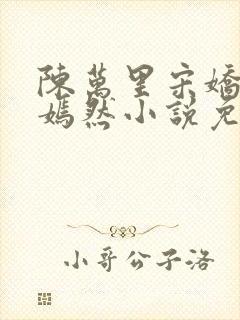 陳萬里宋嬌
嫣然小說免
小哥公子洛